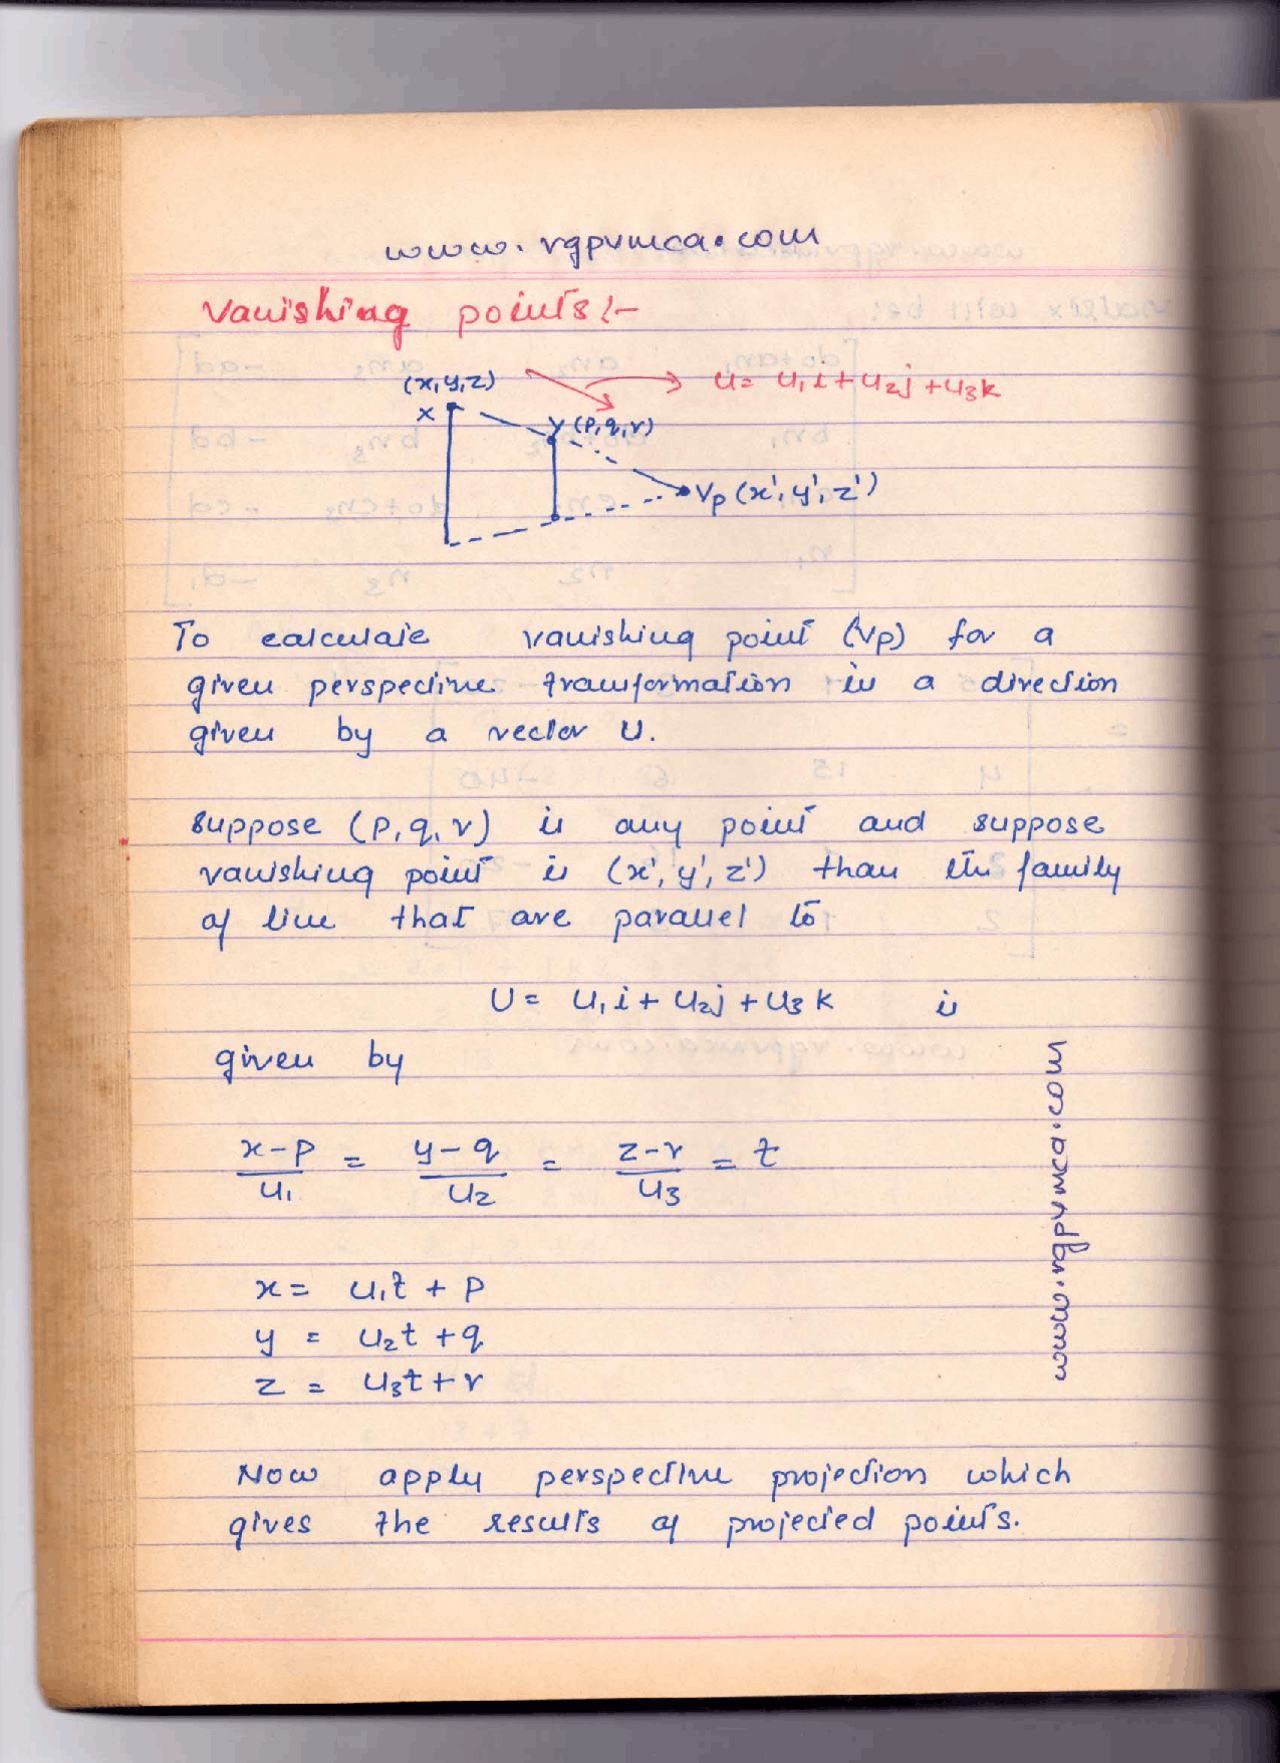 www.rgpvmca.com
Vanishing points:-
(x,y,z)
U = u₁i + u₂j + u₃k
X
Y (p,q,r)
Vp (x', y', z')
To calculate vanishing point (Vp) for a
given perspective transformation in a direction
given by a vector U.
Suppose (p,q,r) is any point and suppose
vanishing point is (x', y', z') than the family
of line that are parallel to
U = u₁i + u₂j + u₃k is
given by
x-p/u₁ = y-q/u₂ = z-r/u₃ = t
x = u₁t + p
y = u₂t + q
z = u₃t + r
Now apply perspective projection which
gives the results of projected points.
www.rgpvmca.com